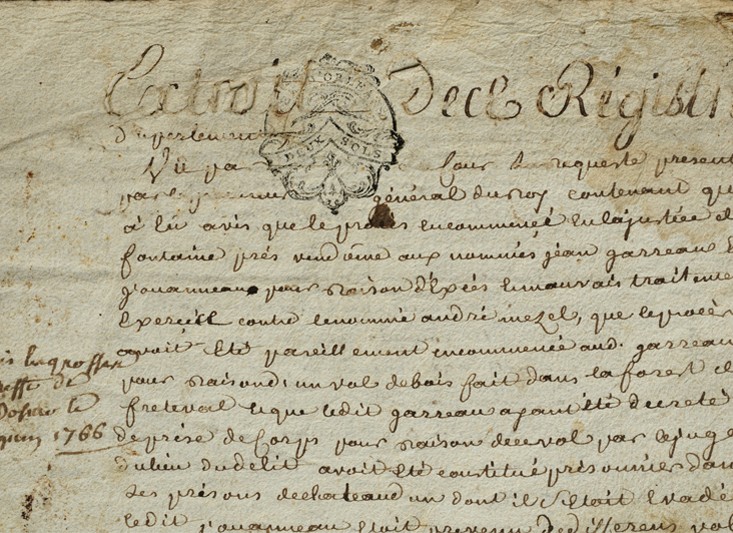 Extrait Des Régistr
d'u parlement
DEUX SOLS
Vû pa La Cour La requeste present
par le procureur général du roy contenant qu
à lû avis que le procès encommencé en la justice de
fontaine prés vendôme aux nommés jéan garreau E
jouanneau pour raison d'Exçés Et mauvais traitemen
Exercés contre le nommé andré mezel, que le procés
avoit Eté pareillement encommencé aud. garreau
pour raison d'un vol de bois fait dans la forest d
freteval Et que ledit garreau ayant été decreté
de prise de Corps pour raison de ce vol par le juge
du lieu du delit avoit Eté constitué prisonnier dan
les prisons de chateaudun dont il s'Etoit Evadé
ledit jouanneau Etoit prevenu de differens vol
is la grosse
greffe de
le
juin 1766